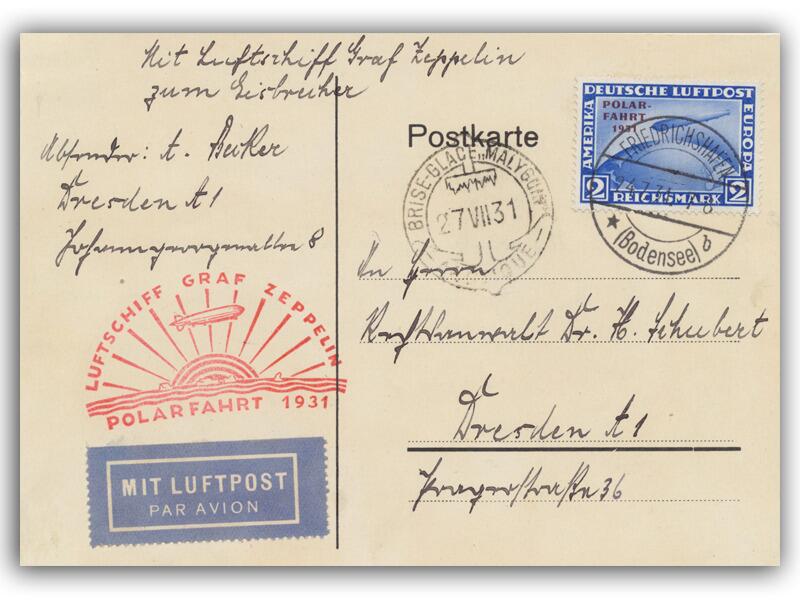 Mit Luftschiff Graf Zeppelin
zum Eisbrecher
Absender: A. Becker
Dresden A 1
8
Postkarte
DEUTSCHE LUFTPOST
AMERIKA
EUROPA
POLAR-
FAHRT
1931
2 REICHSMARK 2
FRIEDRICHSHAFEN
(Bodensee) d
BRISE-GLACE „MALYGUIN"
27 VII 31
An Herrn
Rechtsanwalt Dr. H. Schubert
Dresden A 1
Pragerstraße 36
LUFTSCHIFF GRAF ZEPPELIN
POLARFAHRT 1931
MIT LUFTPOST
PAR AVION